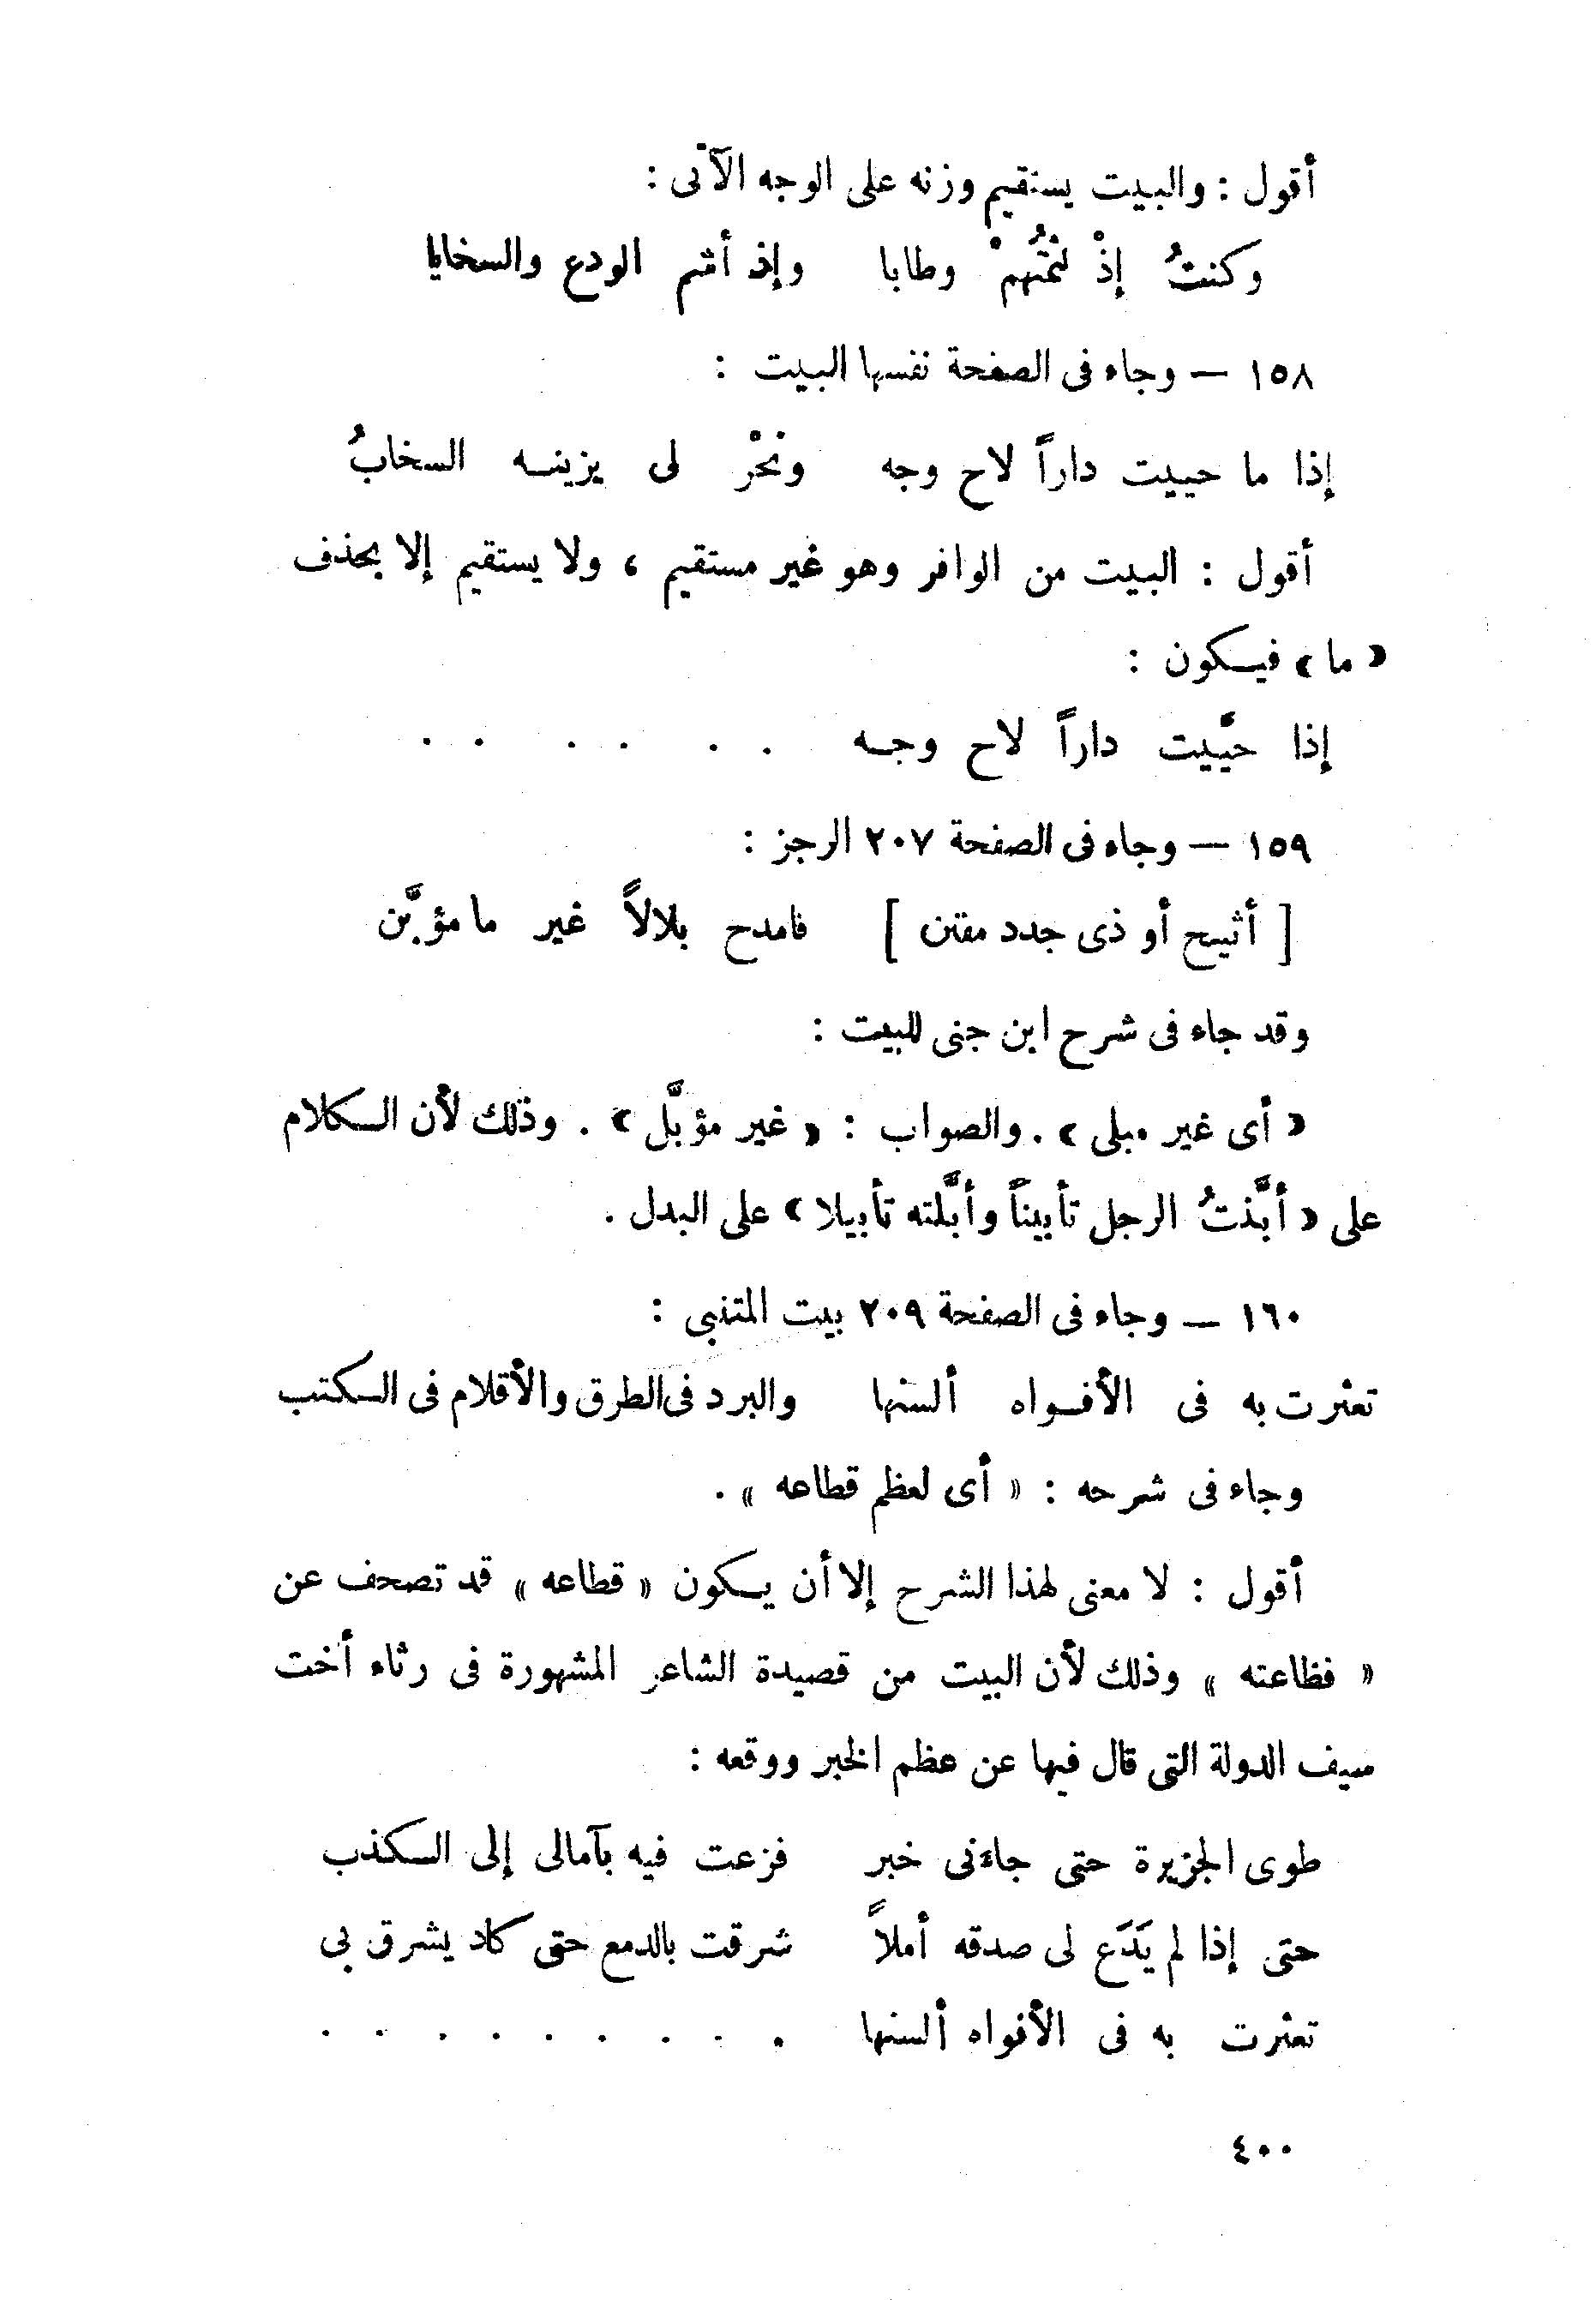 أقول : والبيت يستقيم وزنه على الوجه الآتى :
وكنتُ إذْ لثمتُهمْ وطابا وإذ أشم الودع والسخايا
١٥٨ — وجاء فى الصفحة نفسها البيت :
إذا ما حييت داراً لاح وجه ونحْر لى يزينه السخابُ
أقول : البيت من الوافر وهو غير مستقيم ، ولا يستقيم إلا بحذف
« ما » فيكون :
إذا حيَّيت داراً لاح وجه . . . . . .
١٥٩ — وجاء فى الصفحة ٢٠٧ الرجز :
[ أثيبح أو ذى جدد مفتن ] فامدح بلالاً غير ما مؤبَّن
وقد جاء فى شرح ابن جنى للبيت :
« أى غير مبلى » . والصواب : « غير مؤبَّل » . وذلك لأن الكلام
على « أبَّنتُ الرجل تأبيناً وأبَّلته تأبيلا » على البدل .
١٦٠ — وجاء فى الصفحة ٢٠٩ بيت المتنبى :
تعثرت به فى الأفواه ألسنها والبرد فى الطرق والأقلام فى الكتب
وجاء فى شرحه : « أى لعظم قطاعه » .
أقول : لا معنى لهذا الشرح إلا أن يكون « قطاعه » قد تصحف عن
« فظاعته » وذلك لأن البيت من قصيدة الشاعر المشهورة فى رثاء أخت
سيف الدولة التى قال فيها عن عظم الخبر ووقعه :
طوى الجزيرة حتى جاءنى خبر فزعت فيه بآمالى إلى الكذب
حتى إذا لم يَدَع لى صدقه أملاً شرقت بالدمع حتى كاد يشرق بى
تعثرت به فى الأفواه ألسنها . . . . . . . . .
٤٠٠